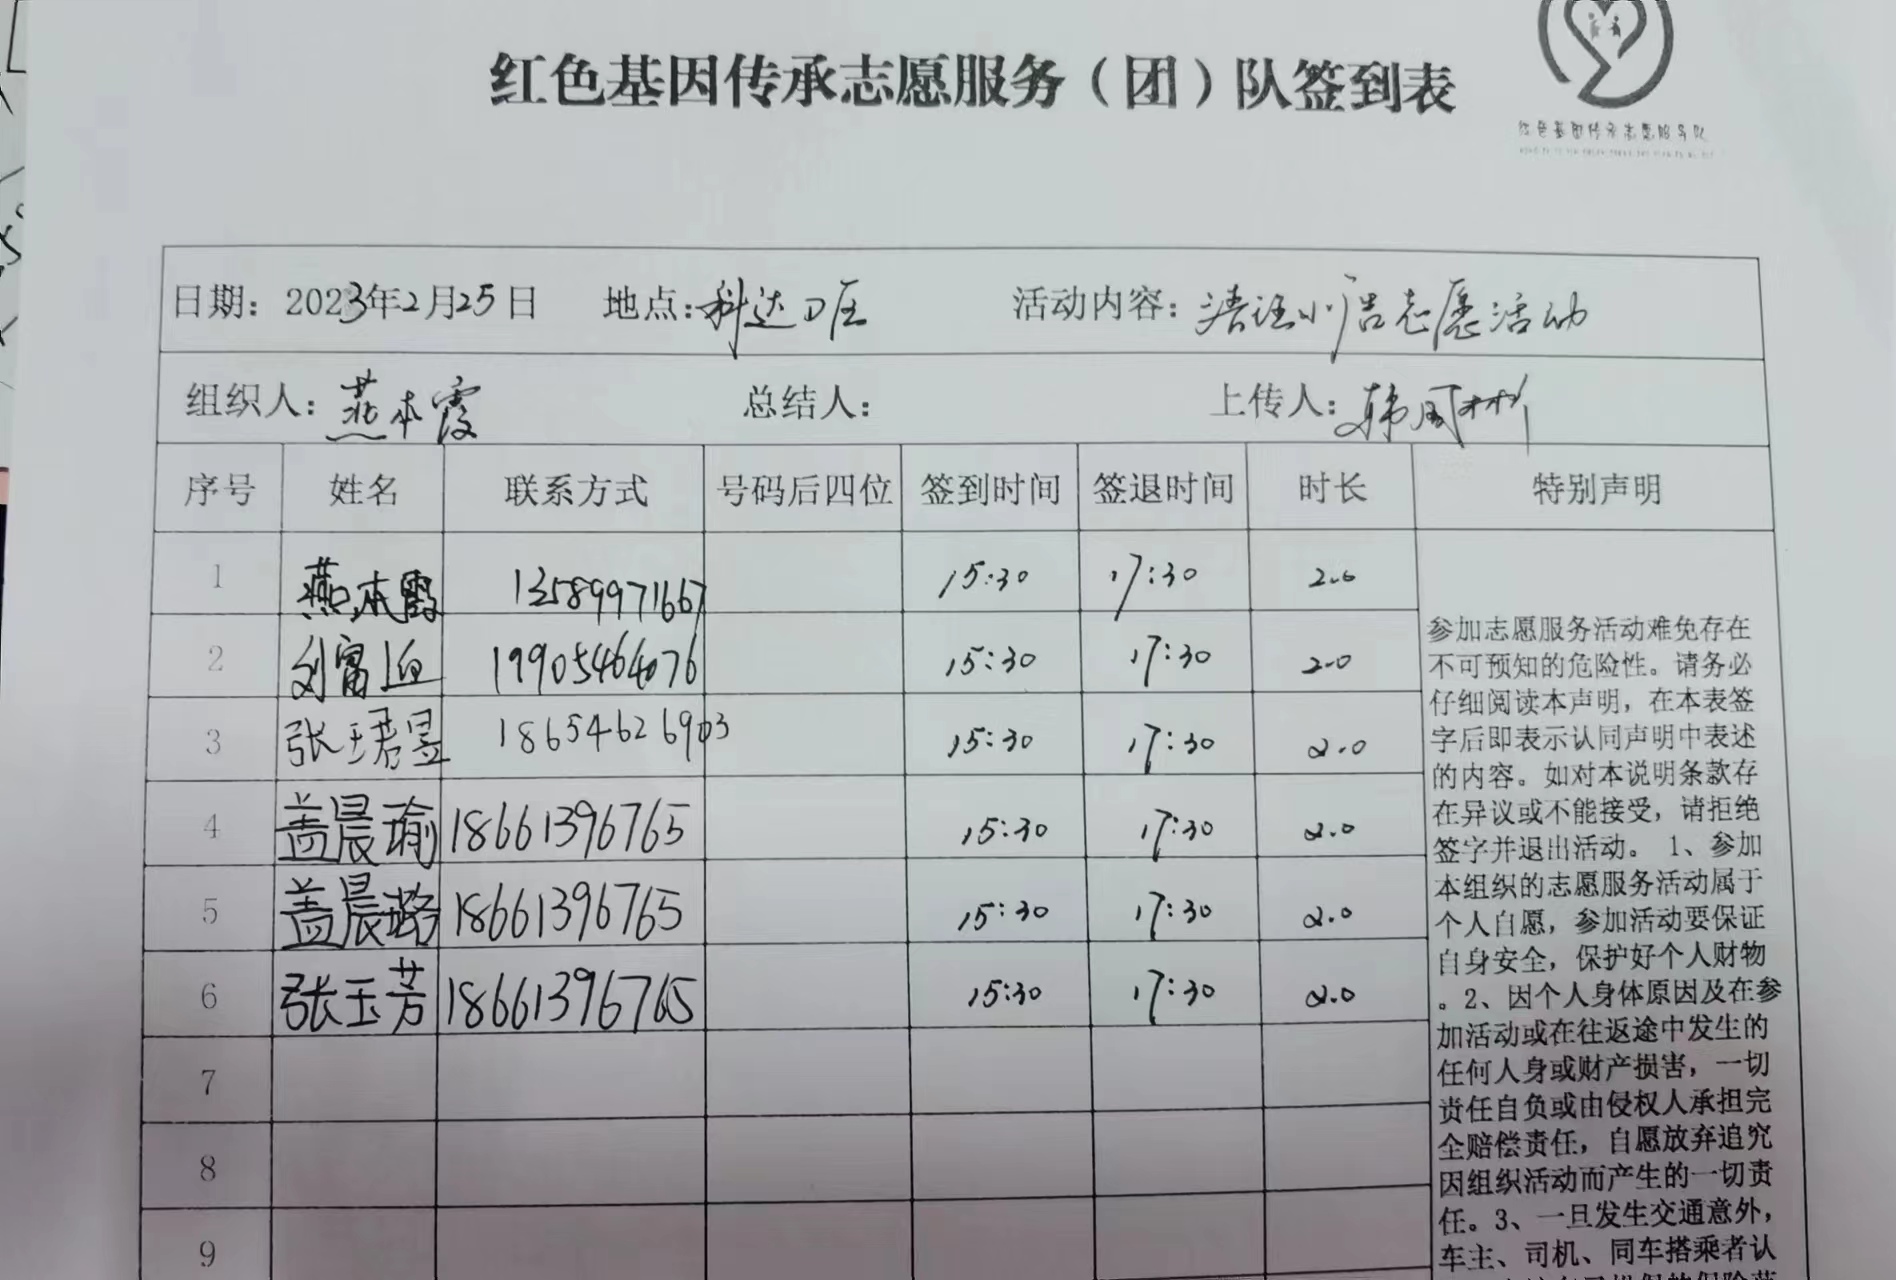 红色基因传承志愿服务（团）队签到表
红色基因传承志愿服务队
日期：2023年2月25日 地点：科达 活动内容：清理小广告志愿活动
组织人：燕本霞 总结人： 上传人：韩
序号 姓名 联系方式 号码后四位 签到时间 签退时间 时长 特别声明
1 燕本霞 13589971667 15:30 17:30 2.0
2 刘富 19905464076 15:30 17:30 2.0
3 张珺昱 18654626903 15:30 17:30 2.0
4 盖晨瑜 18661396765 15:30 17:30 2.0
5 盖晨璐 18661396765 15:30 17:30 2.0
6 张玉芳 18661396765 15:30 17:30 2.0
7
8
9
参加志愿服务活动难免存在
不可预知的危险性。请务必
仔细阅读本声明，在本表签
字后即表示认同声明中表述
的内容。如对本说明条款存
在异议或不能接受，请拒绝
签字并退出活动。 1、参加
本组织的志愿服务活动属于
个人自愿，参加活动要保证
自身安全，保护好个人财物
。2、因个人身体原因及在参
加活动或在往返途中发生的
任何人身或财产损害，一切
责任自负或由侵权人承担完
全赔偿责任，自愿放弃追究
因组织活动而产生的一切责
任。3、一旦发生交通意外，
车主、司机、同车搭乘者认